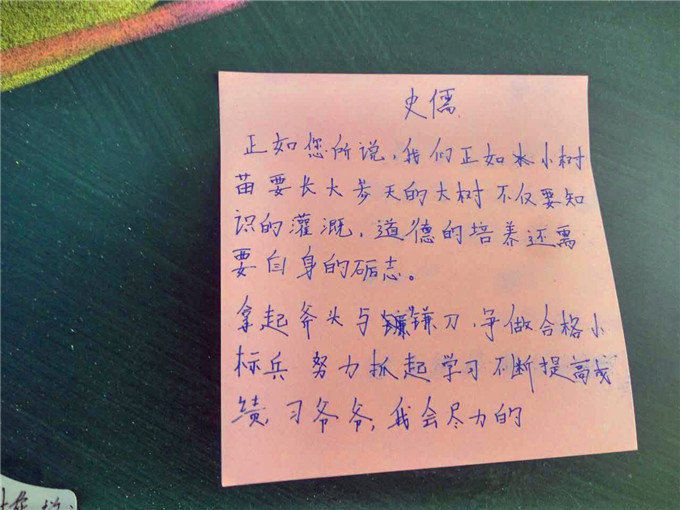 史儒
正如您所说，我们正如小树
苗要长大参天的大树不仅要知
识的灌溉，道德的培养还需
要自身的砺志。
拿起斧头与镰刀，争做合格小
标兵 努力抓起学习不断提高成
绩，习爷爷，我会尽力的